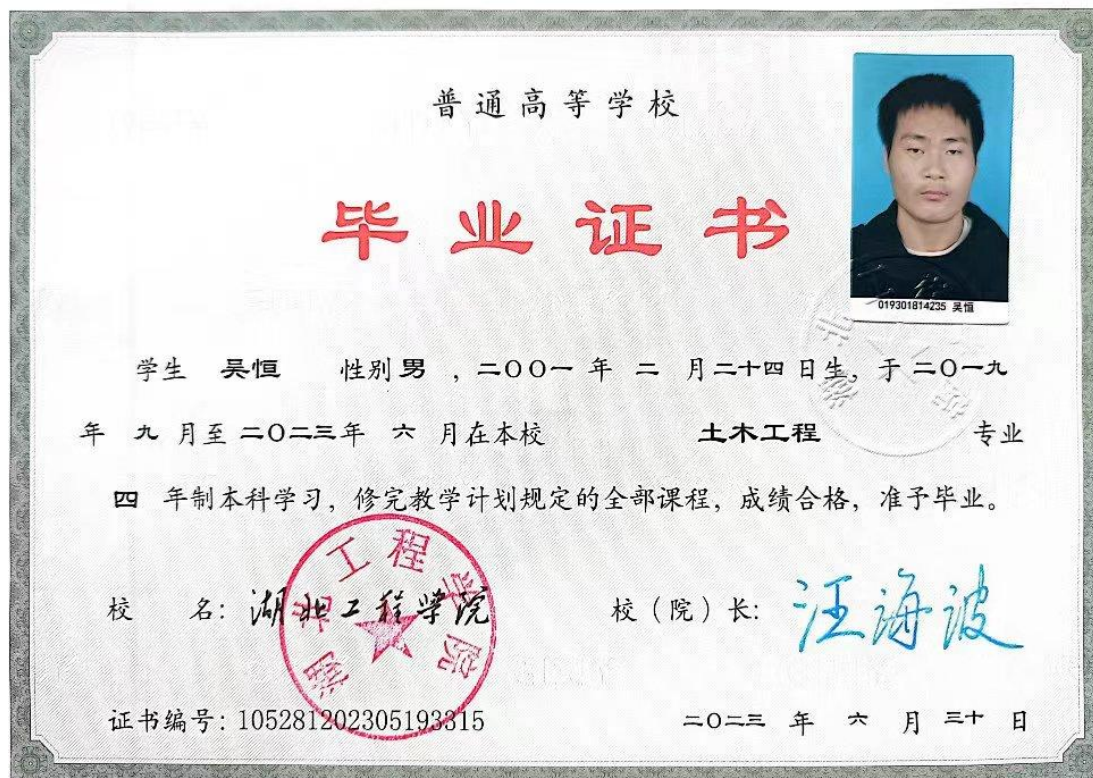 普通高等学校
毕业证书
019301814235 吴恒
学生 吴恒 性别 男 ，二〇〇一 年 二 月 二十四 日生，于 二〇一九
年 九 月至 二〇二三 年 六 月在本校 土木工程 专业
四 年制本科学习，修完教学计划规定的全部课程，成绩合格，准予毕业。
校 名：湖北工程学院
湖北工程学院
校（院）长：汪海波
证书编号：105281202305193315
二〇二三 年 六 月 三十 日